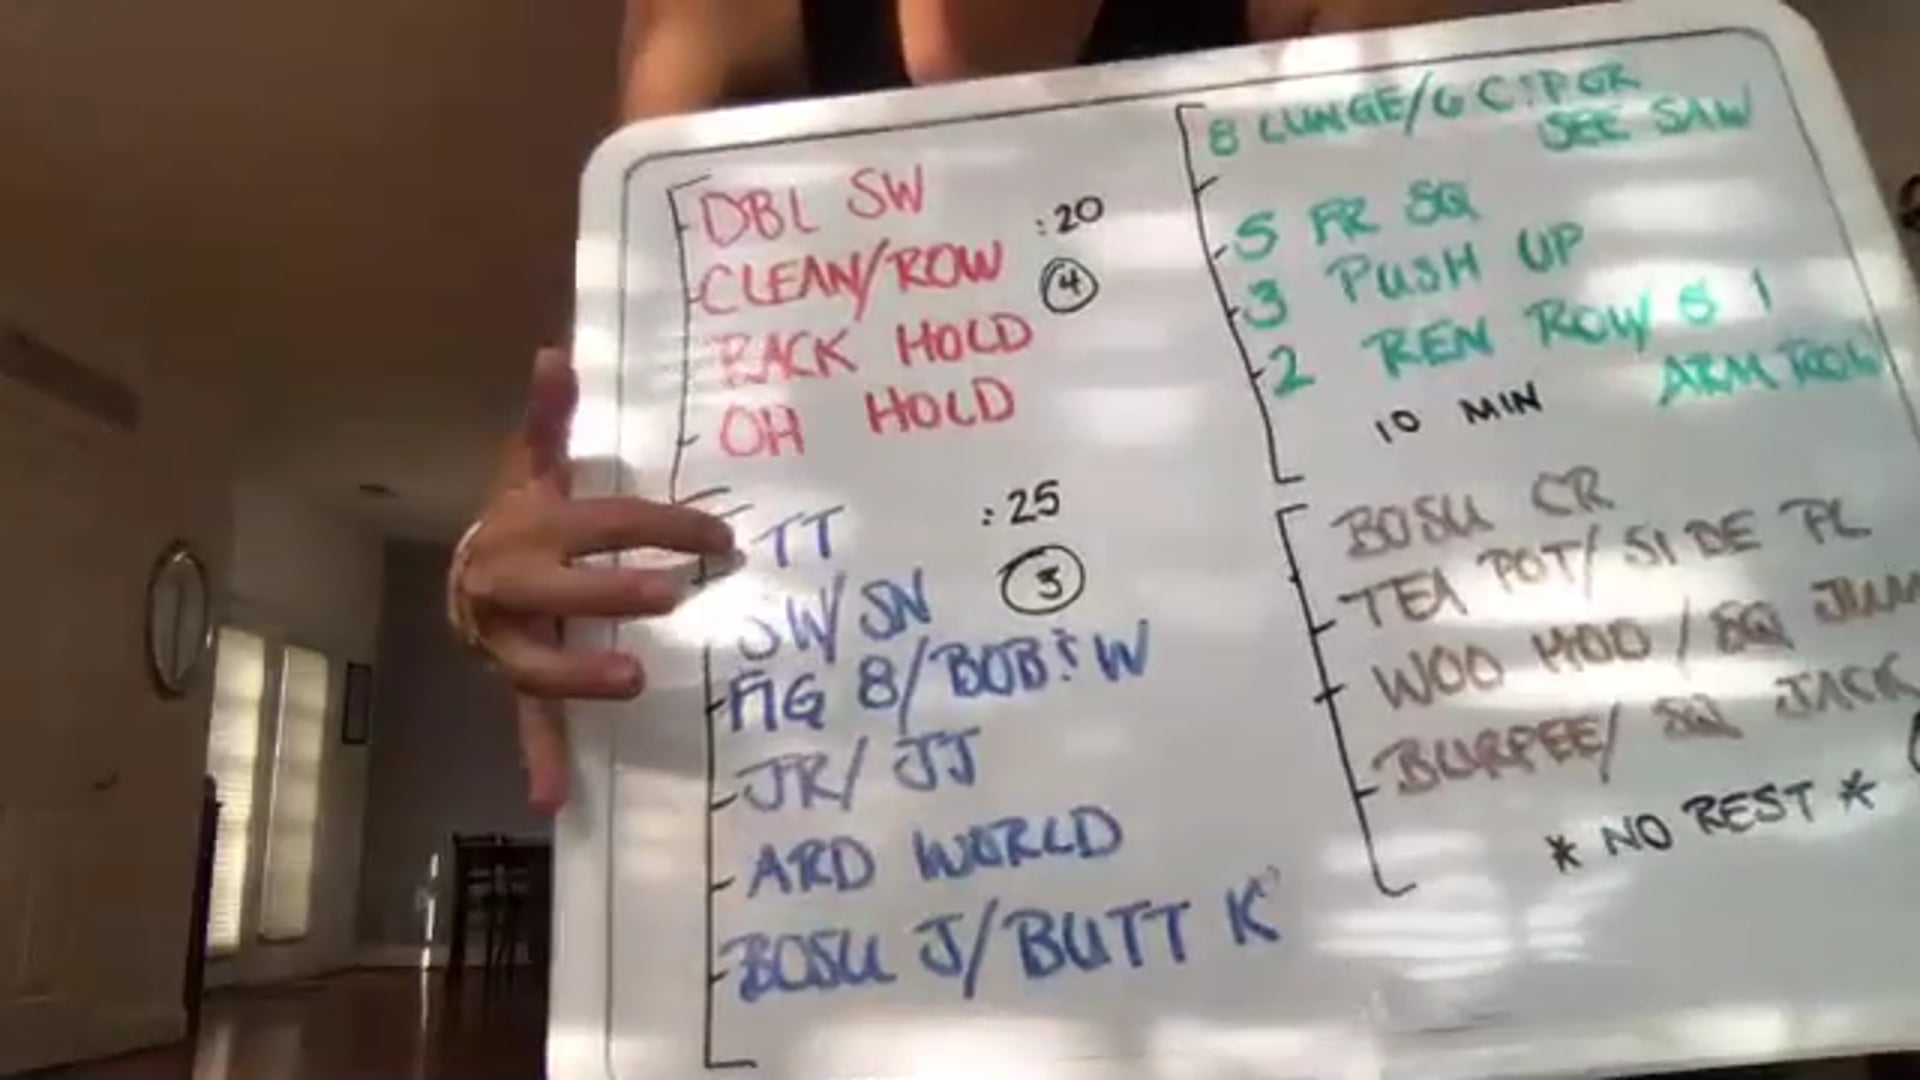 DBL SW
:20
CLEAN/ROW
4
RACK HOLD
OH HOLD
TT
:25
SW/SN
3
FIG 8/BOB & W
JR/ JJ
ARD WORLD
BOSU J/BUTT K
8 LUNGE/6
SEE SAW
5 FR SQ
3 PUSH UP
2 REN ROW/
ARM ROW
10 MIN
BOSU CR
TEA POT/SIDE PL
WOO HOO/SQ
BURPEE/ SQ JACK
* NO REST *